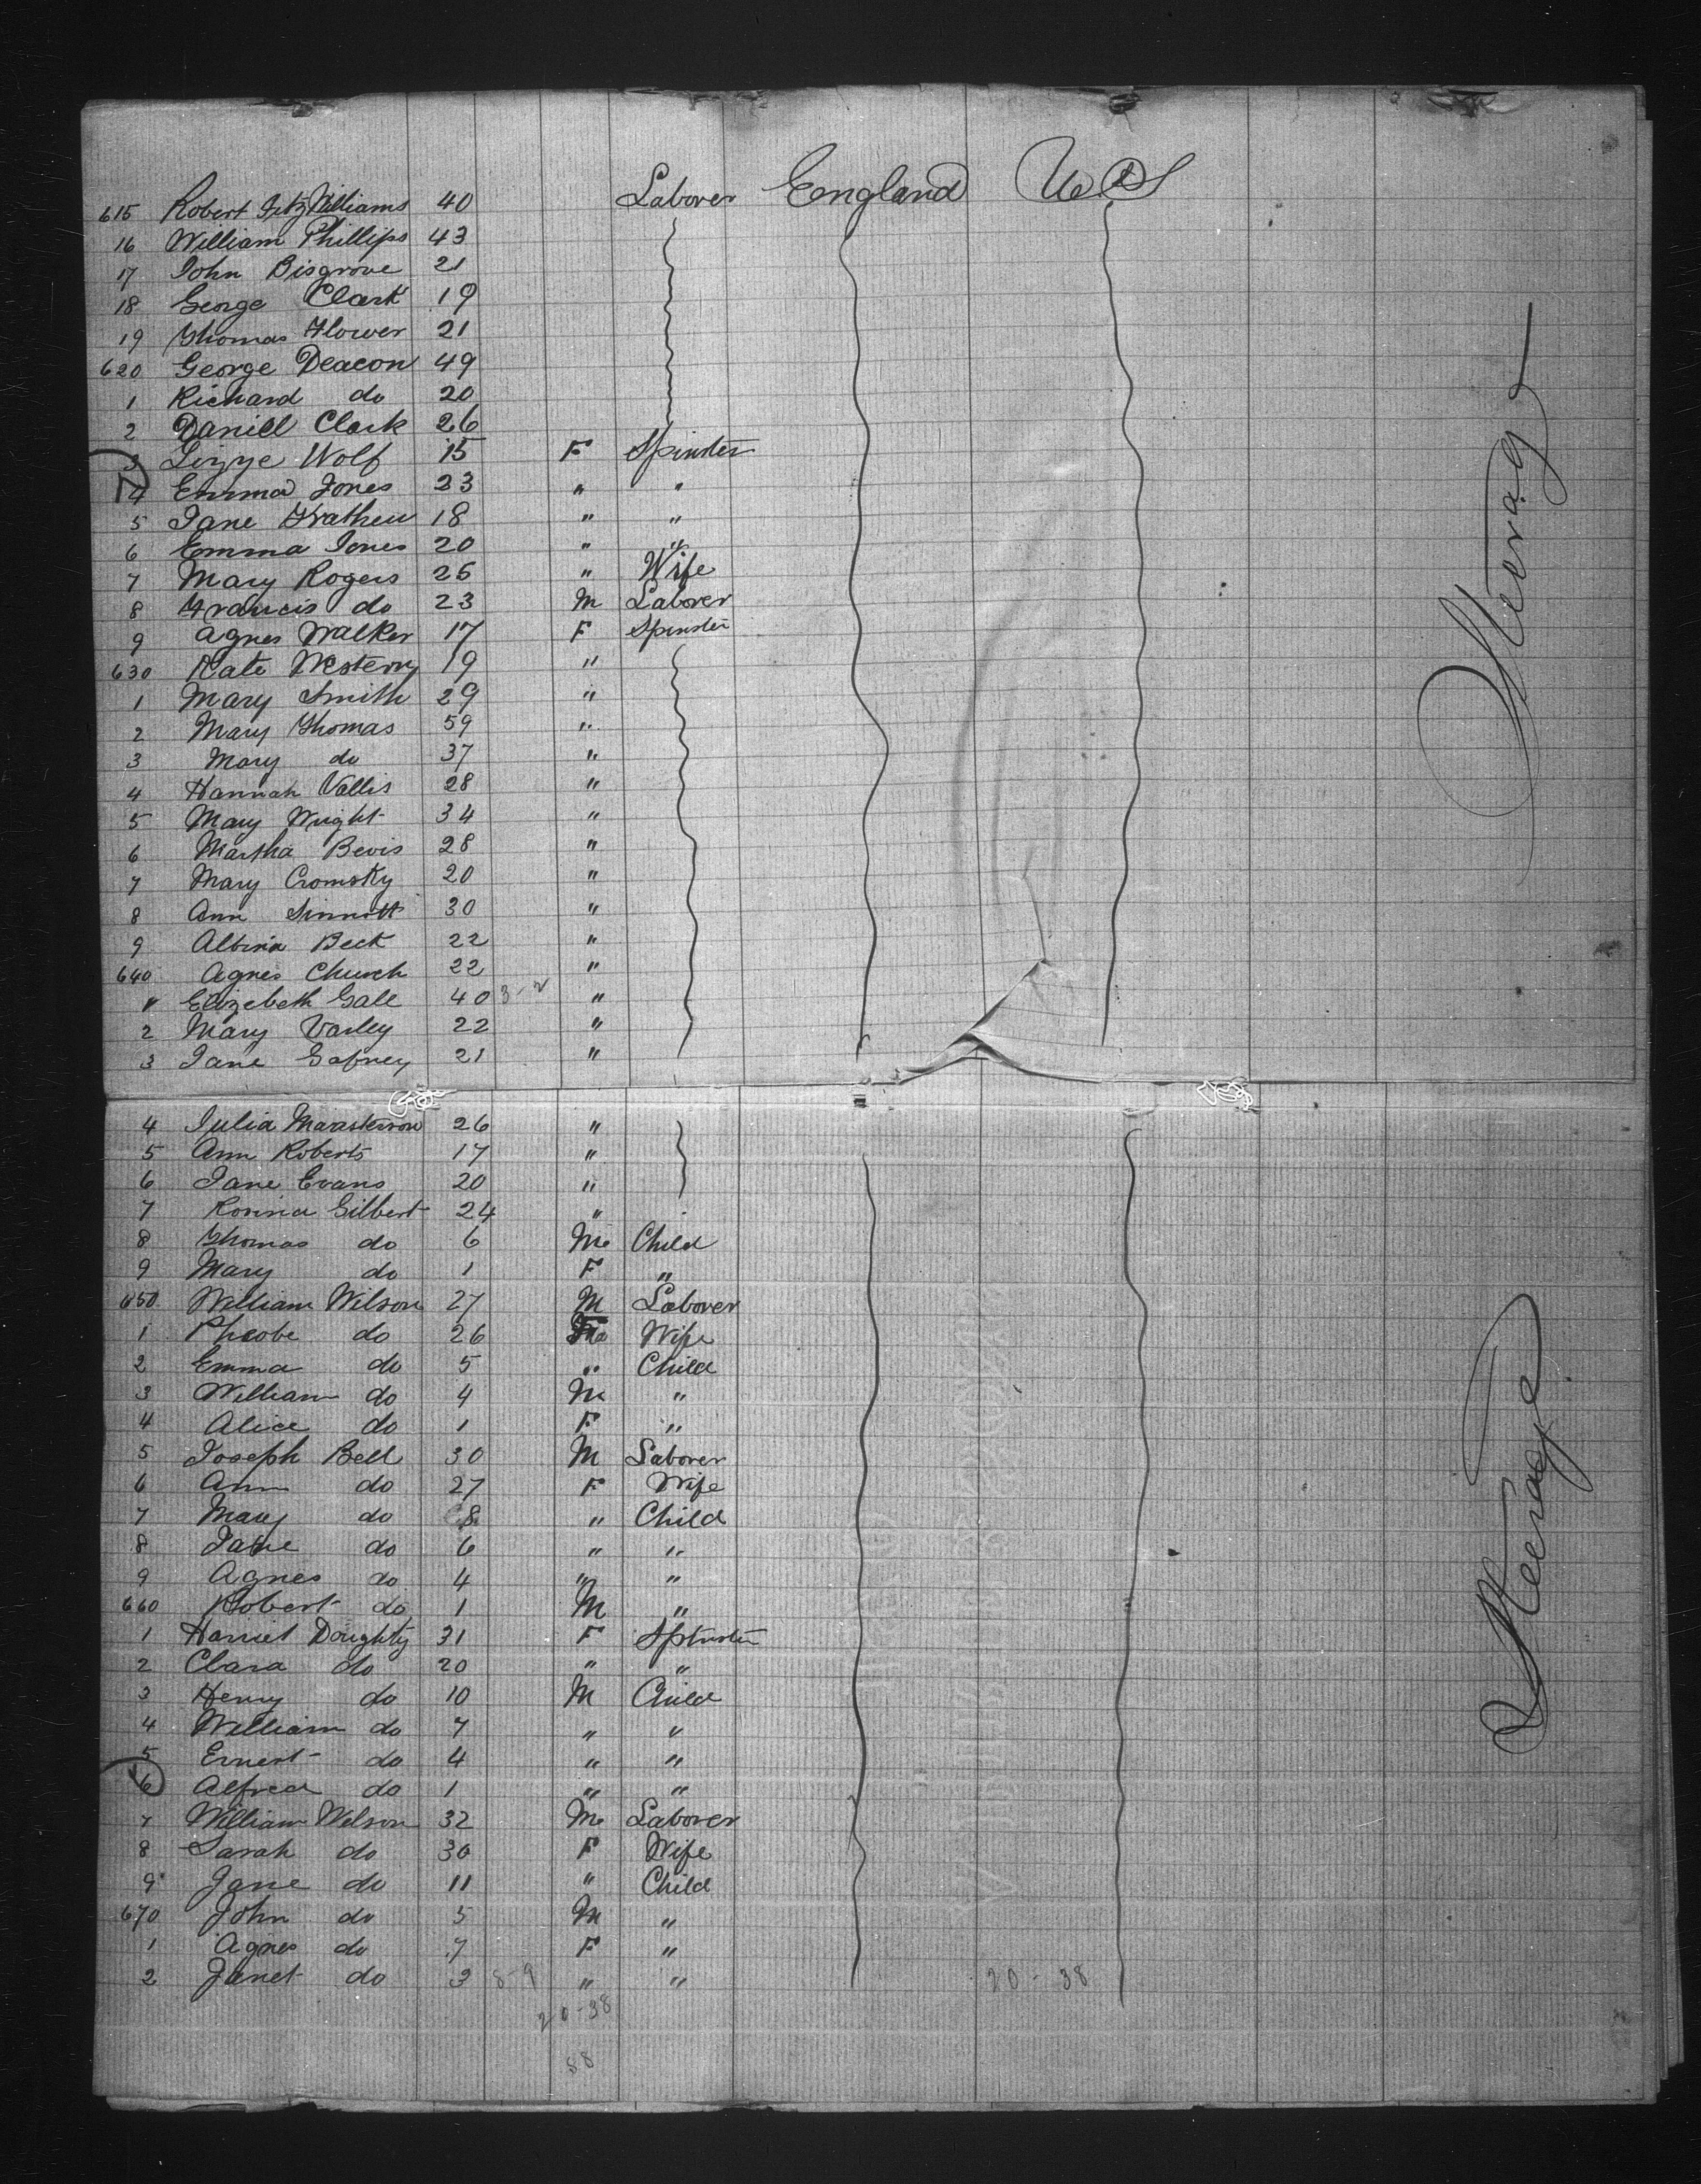 615 Robert FitzWilliams 40 Laborer England U S
16 William Phillips 43
17 John Bisgrove 21
18 George Clark 19
19 Thomas Flower 21
620 George Deacon 49
1 Richard do 20
2 Daniel Clark 26
3 Lizzye Wolf 15 F Spinster
4 Emma Jones 23 " "
5 Jane Trathen 18 " "
6 Emma Jones 20 " "
7 Mary Rogers 25 " Wife
8 Francis do 23 M Laborer
9 Agnes Walker 17 F Spinster
630 Kate Western 19 "
1 Mary Smith 29 "
2 Mary Thomas 59 "
3 Mary do 37 "
4 Hannah Vallis 28 "
5 Mary Wright 34 "
6 Martha Bevis 28 "
7 Mary Cromsky 20 "
8 Ann Sinnott 30 "
9 Albina Beck 22 "
640 Agnes Church 22 "
1 Elizebeth Gale 40 3-2 "
2 Mary Varley 22 "
3 Jane Gafney 21 "
Steerag
4 Julia 26 "
5 Ann Roberts 17 "
6 Jane Evans 20 "
7 Rosina Gilbert 24 "
8 Thomas do 6 M Child
9 Mary do 1 F "
650 William Wilson 27 M Laborer
1 Pheobe do 26 F Wife
2 Emma do 5 " Child
3 William do 4 M "
4 Alice do 1 F "
5 Joseph Bell 30 M Laborer
6 Ann do 27 F Wife
7 Mary do 8 " Child
8 Jane do 6 " "
9 Agnes do 4 " "
660 Robert do 1 M "
1 Harriet Doughty 31 F Spinster
2 Clara do 20 " "
3 Henry do 10 M Child
4 William do 7 " "
5 Ernest do 4 " "
6 Alfred do 1 " "
7 William Wilson 32 M Laborer
8 Sarah do 30 F Wife
9 Jane do 11 " Child
670 John do 5 M "
1 Agnes do 7 F "
2 Janet do 3 8-9 " " 20-38
20-38
58
Steerage